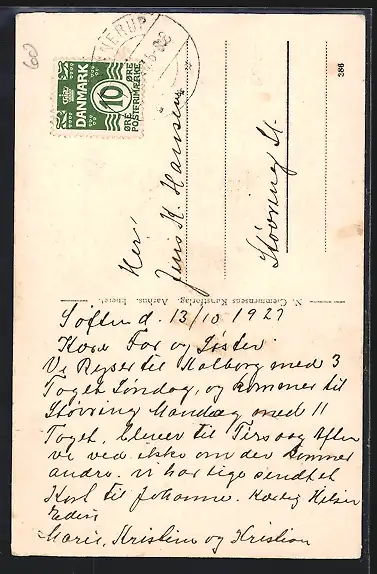 60
NERUP
DANMARK
10
ØRE ØRE
POSTFRIMÆRKE
Herr
Jens K. Hansen
Støvring St.
386
N. Clemmensens Kunstforlag, Aarhus. Eneret.
d. 13/10 1927
Kære Far og Søster.
Vi Rejser til Aalborg med 3
Toget Søndag, og kommer til
Støvring Mandag med 11
Toget. til Tirsdag Aften
vi ved ikke om der kommer
andre. vi har lige sendt et
Kort til Johanne. Kærlig Hilsen
Eders
Marie, Kristine og Kristian